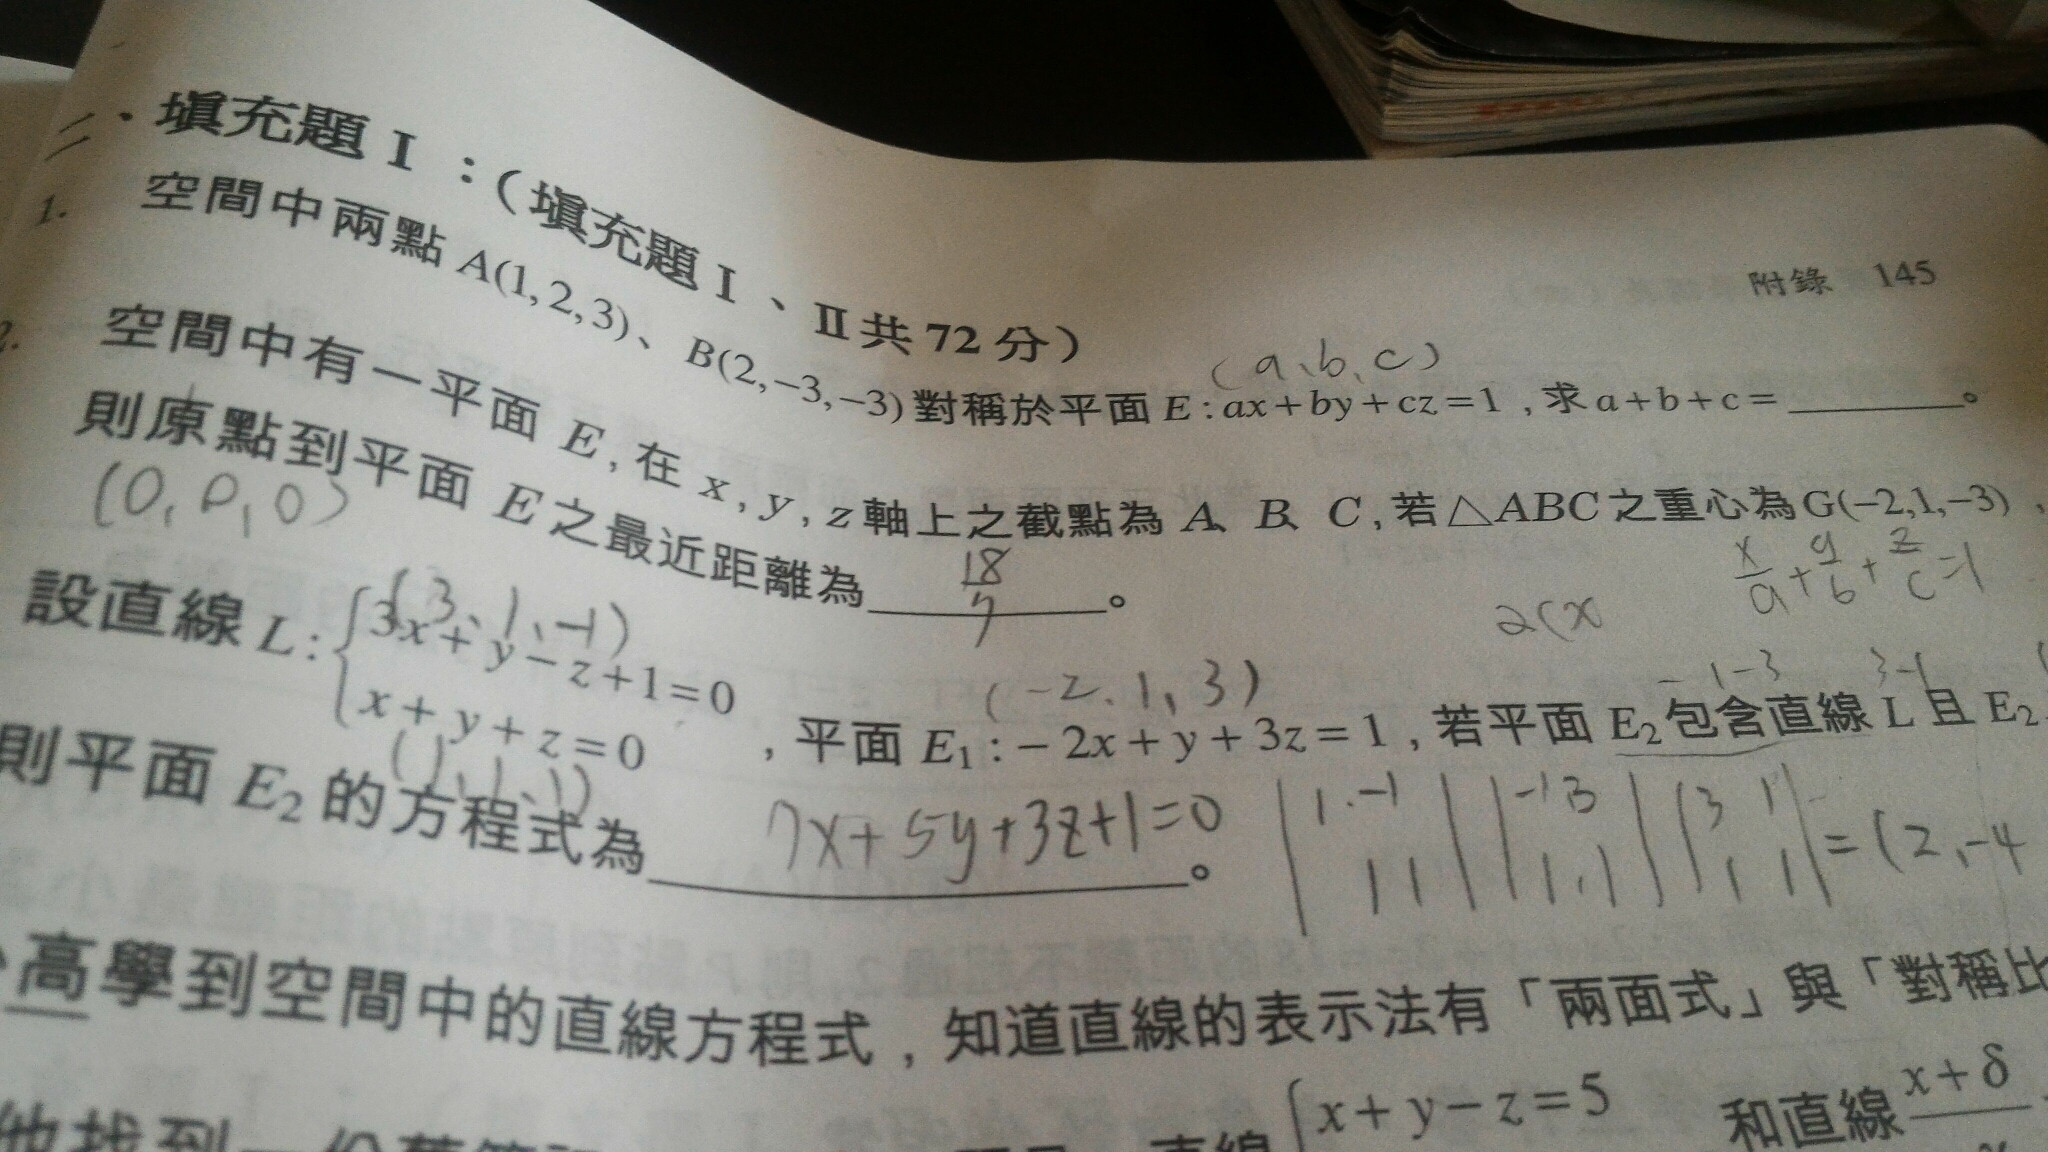 二、填充題 I :(填充題 I 、II共 72 分)
附錄 145
(a、b、c)
1. 空間中兩點 A(1,2,3)、B(2,−3,−3)對稱於平面 E:ax+by+cz=1,求a+b+c=______。
2. 空間中有一平面 E,在 x,y,z軸上之截點為 A、B、C,若△ABC之重心為G(−2,1,−3),
則原點到平面 E之最近距離為 18/7 。
(0,0,0)
x/a+y/b+z/c=1
2(x
(3、1、-1)
設直線 L:{3x+y−z+1=0
x+y+z=0
(1、1、1)
(-2.1,3)
,平面 E₁:−2x+y+3z=1,若平面 E₂包含直線 L 且 E₂
-1-3 3-1
則平面 E₂ 的方程式為 7x+5y+3z+1=0 。
|1.-1| |-1 3| |3 1|
|1 1| |1.1| |1 1| =(2,-4
高學到空間中的直線方程式,知道直線的表示法有「兩面式」與「對稱比
x+y−z=5
和直線 x+δ